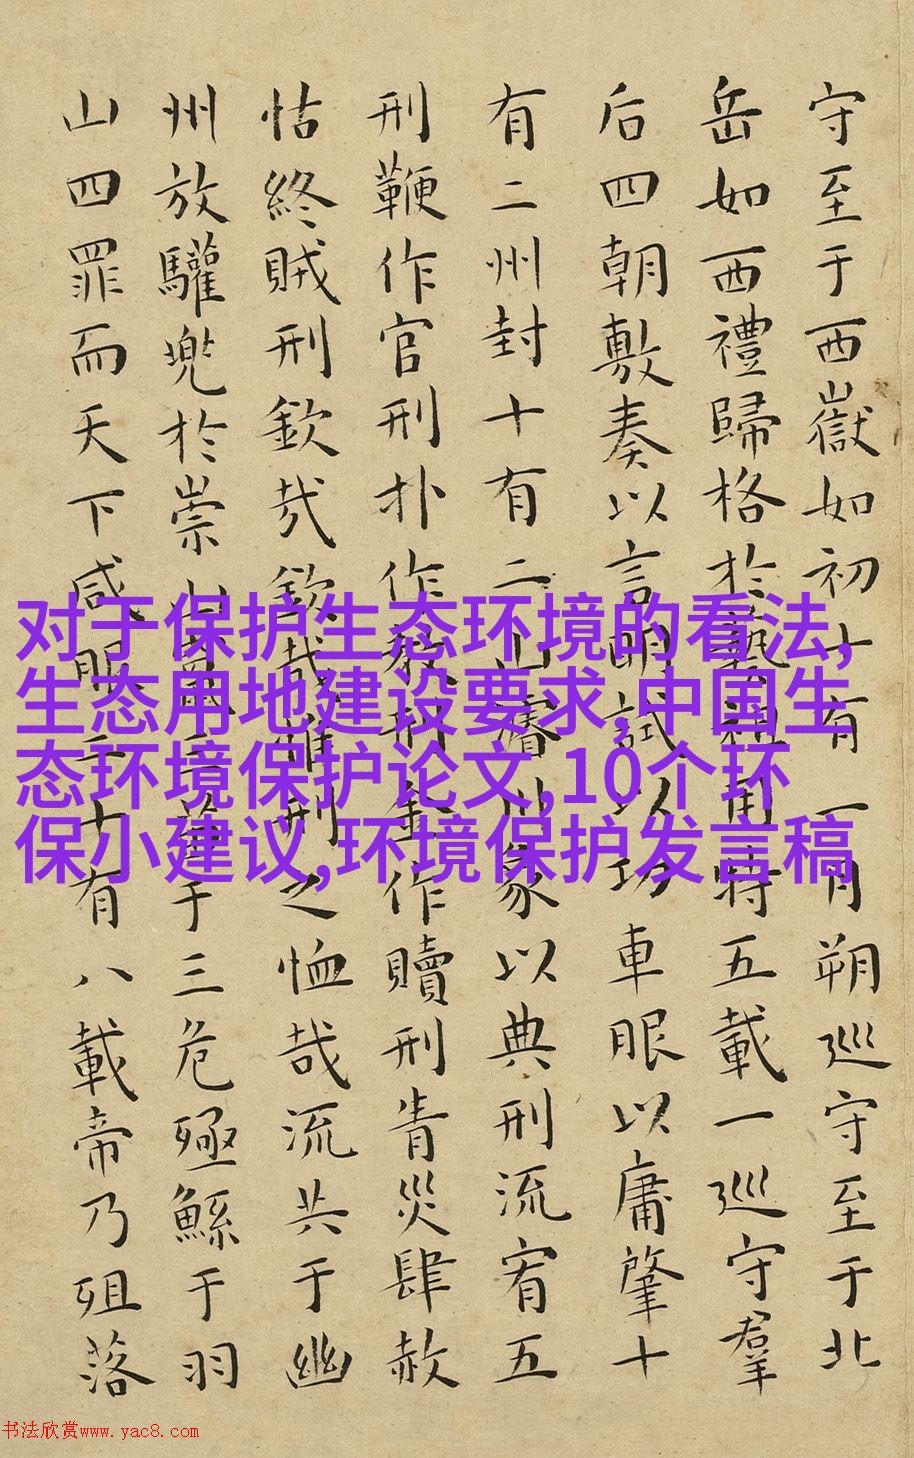 守至于西嶽如初十有一月朔巡守至于北
岳如西禮歸格於藝祖用特五載一巡守羣
后四朝敷奏以言明試以功車眼以庸肇十
有二州封十有二山濬川象以典刑流宥五
刑鞭作官刑扑作教刑金作贖刑眚災肆赦
怙終賊刑欽哉欽哉惟刑之恤哉流共于幽
州放驩兜於崇山竄三苗于三危殛鯀于羽
山四罪而天下咸服二十有八載帝乃殂落
对于保护生态环境的看法,
生态用地建设要求,中国生
态环境保护论文,10个环
保小建议,环境保护发言稿
书法欣赏www.yac8.com